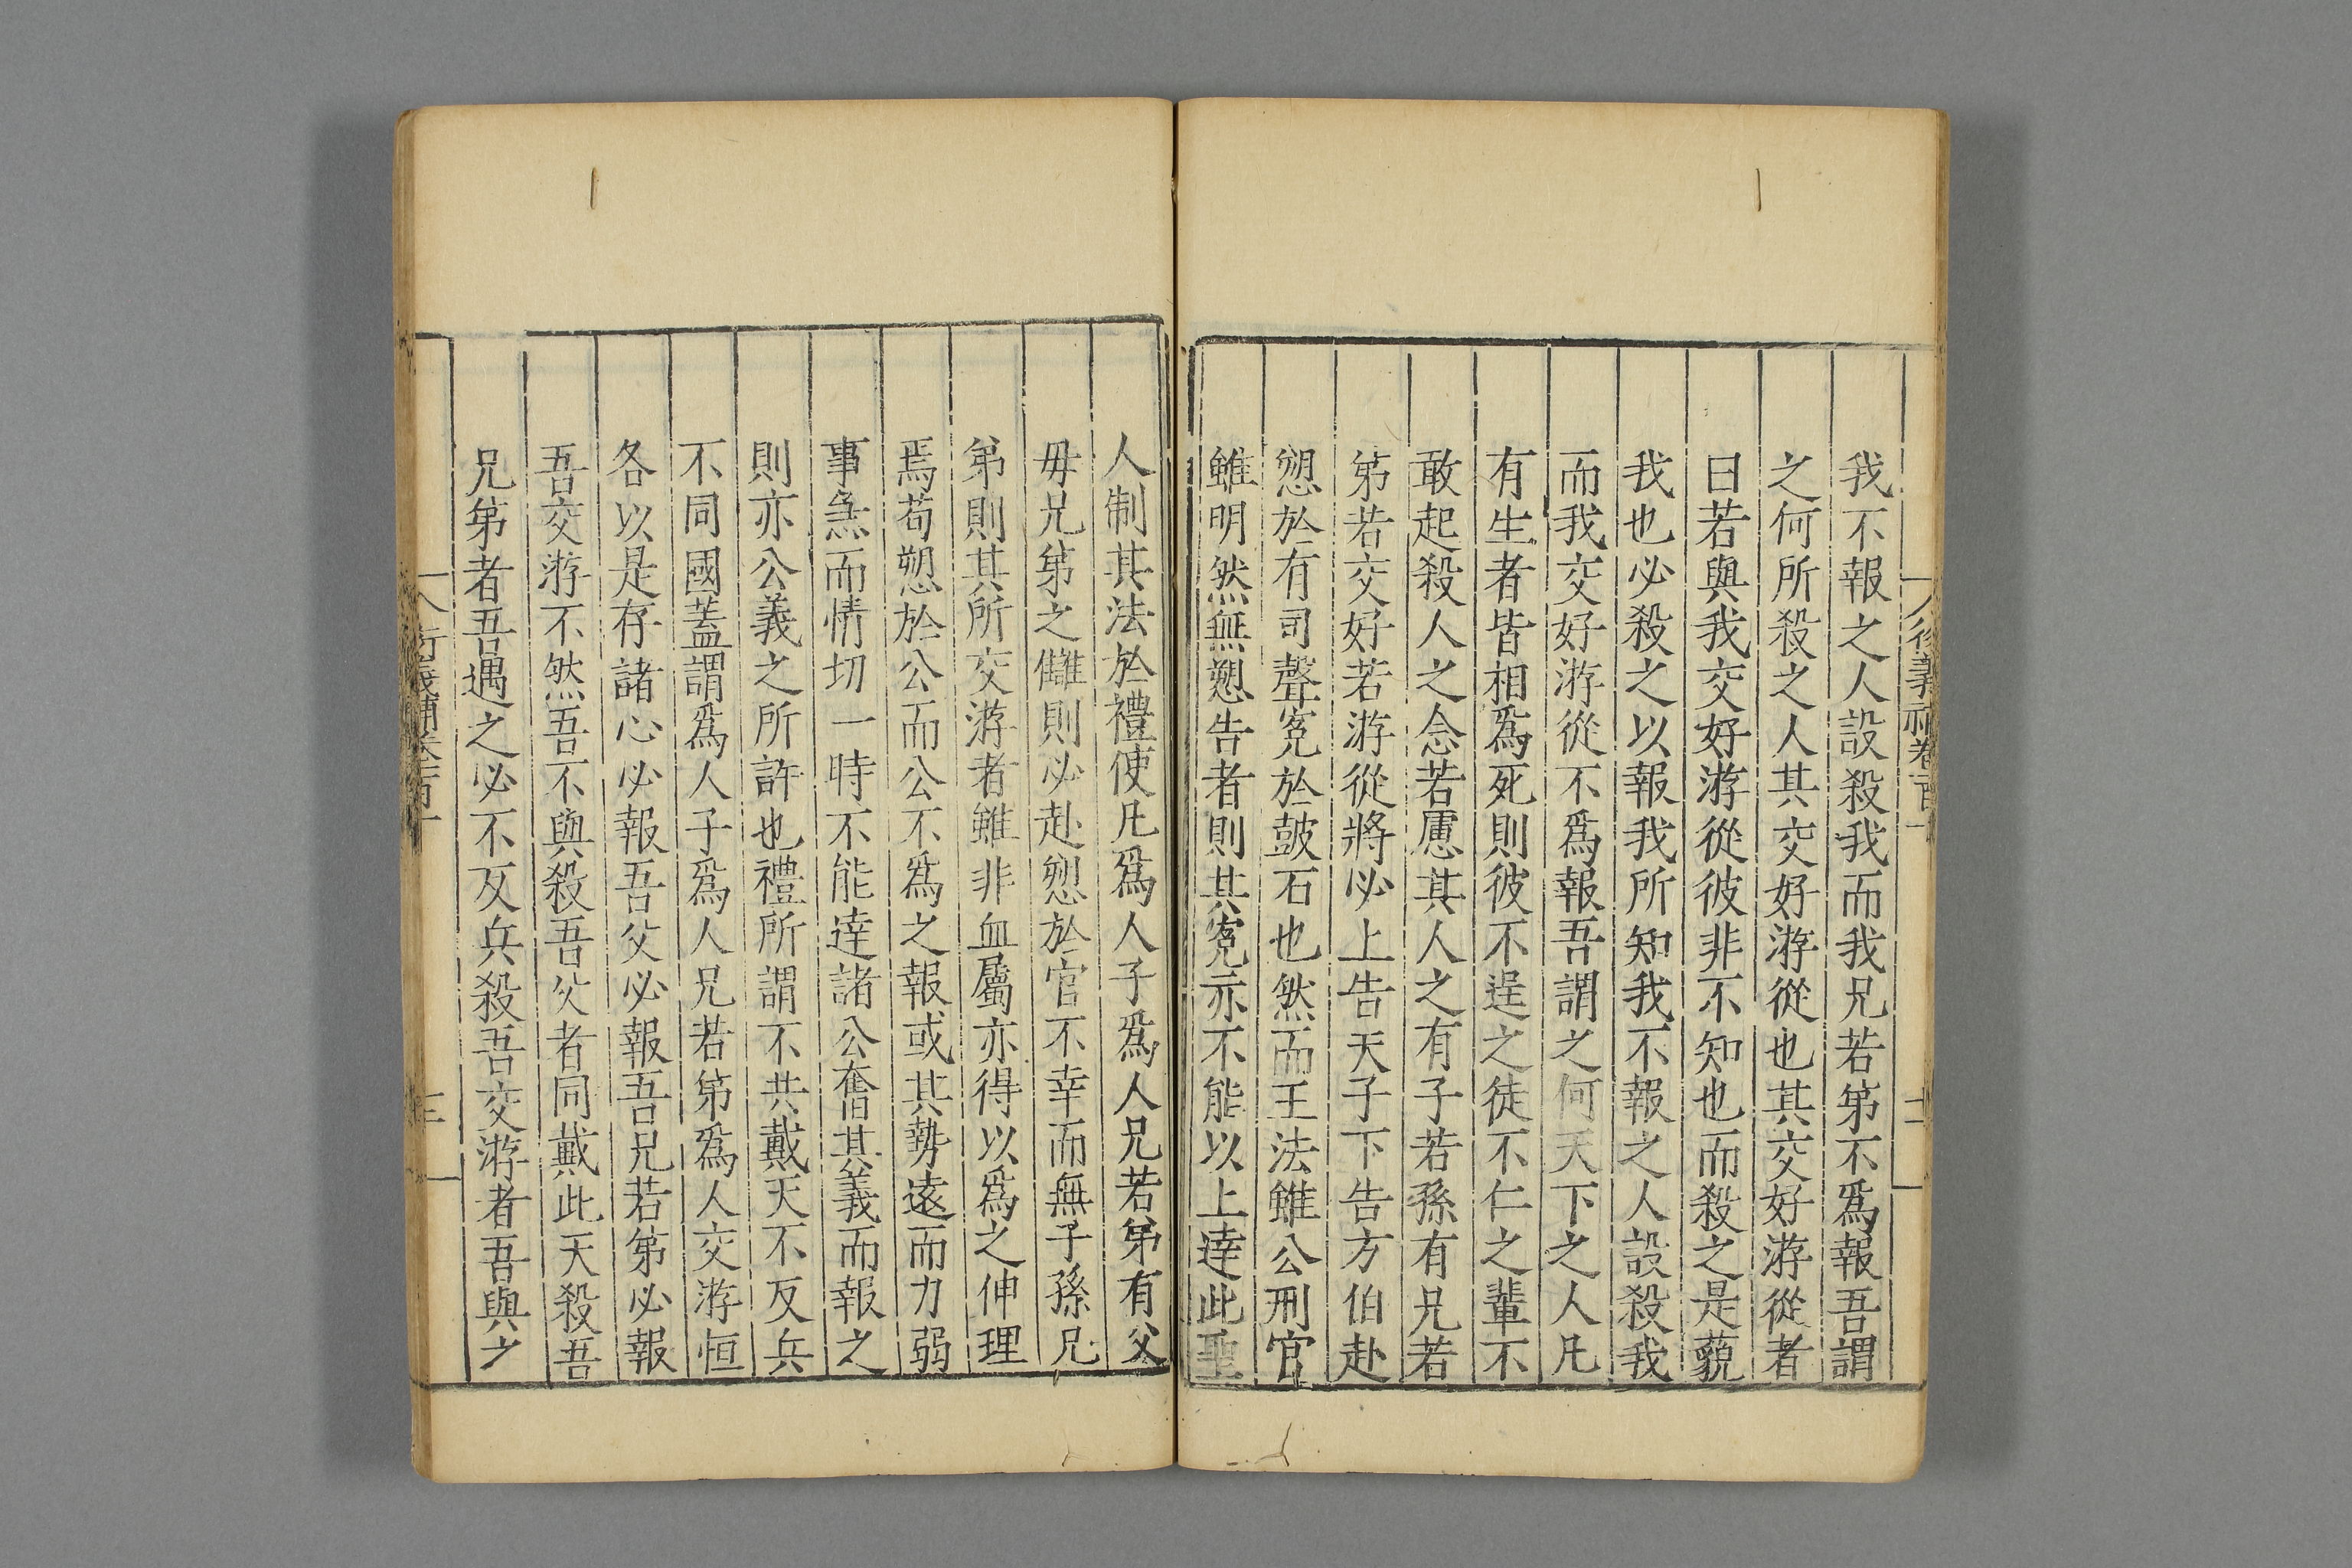 我不報之人設殺我而我兄若第不爲報吾謂
之何所殺之人其交好游從也其交好游從者
曰若與我交好游從彼非不知也而殺之是藐
我也必殺之以報我所知我不報之人設殺我
而我交好游從不爲報吾謂之何天下之人凡
有生者皆相爲死則彼不逞之徒不仁之輩不
敢起殺人之念若慮其人之有子若孫有兄若
第若交好若游從將必上告天子下告方伯赴
愬於有司聲寃於皷石也然而王法雖公刑官
雖明然無愬告者則其寃亦不能以上達此聖
人制其法於禮使凡爲人子爲人兄若弟有父
毋兄第之讎則必赴愬於官不幸而無子孫兄
弟則其所交游者雖非血屬亦得以爲之伸理
焉苟愬於公而公不爲之報或其勢遠而力弱
事𤍠而情切一時不能達諸公奮其義而報之
則亦公義之所許也禮所謂不共戴天不反兵
不同國蓋謂爲人子爲人兄若第爲人交游恒
各以是存諸心必報吾父必報吾兄若第必報
吾交游不然吾不與殺吾父者同戴此天殺吾
兄第者吾遇之必不反兵殺吾交游者吾與之